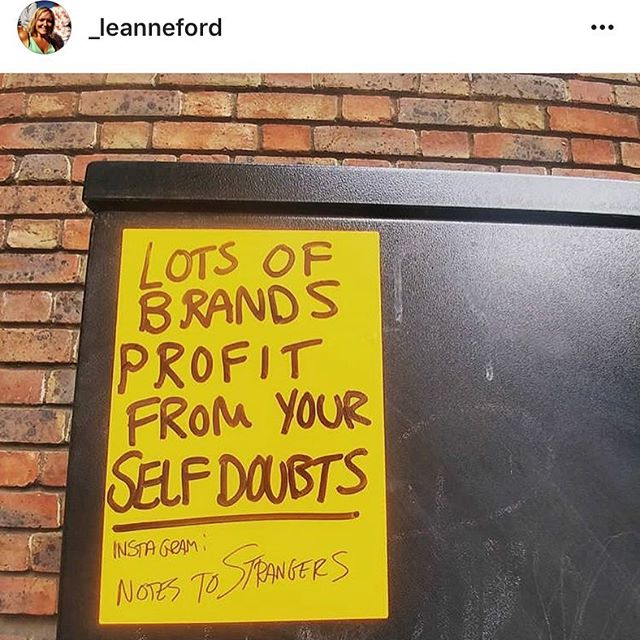 _leanneford
LOTS OF
BRANDS
PROFIT
FROM YOUR
SELF DOUBTS
INSTAGRAM:
NOTES TO STRANGERS